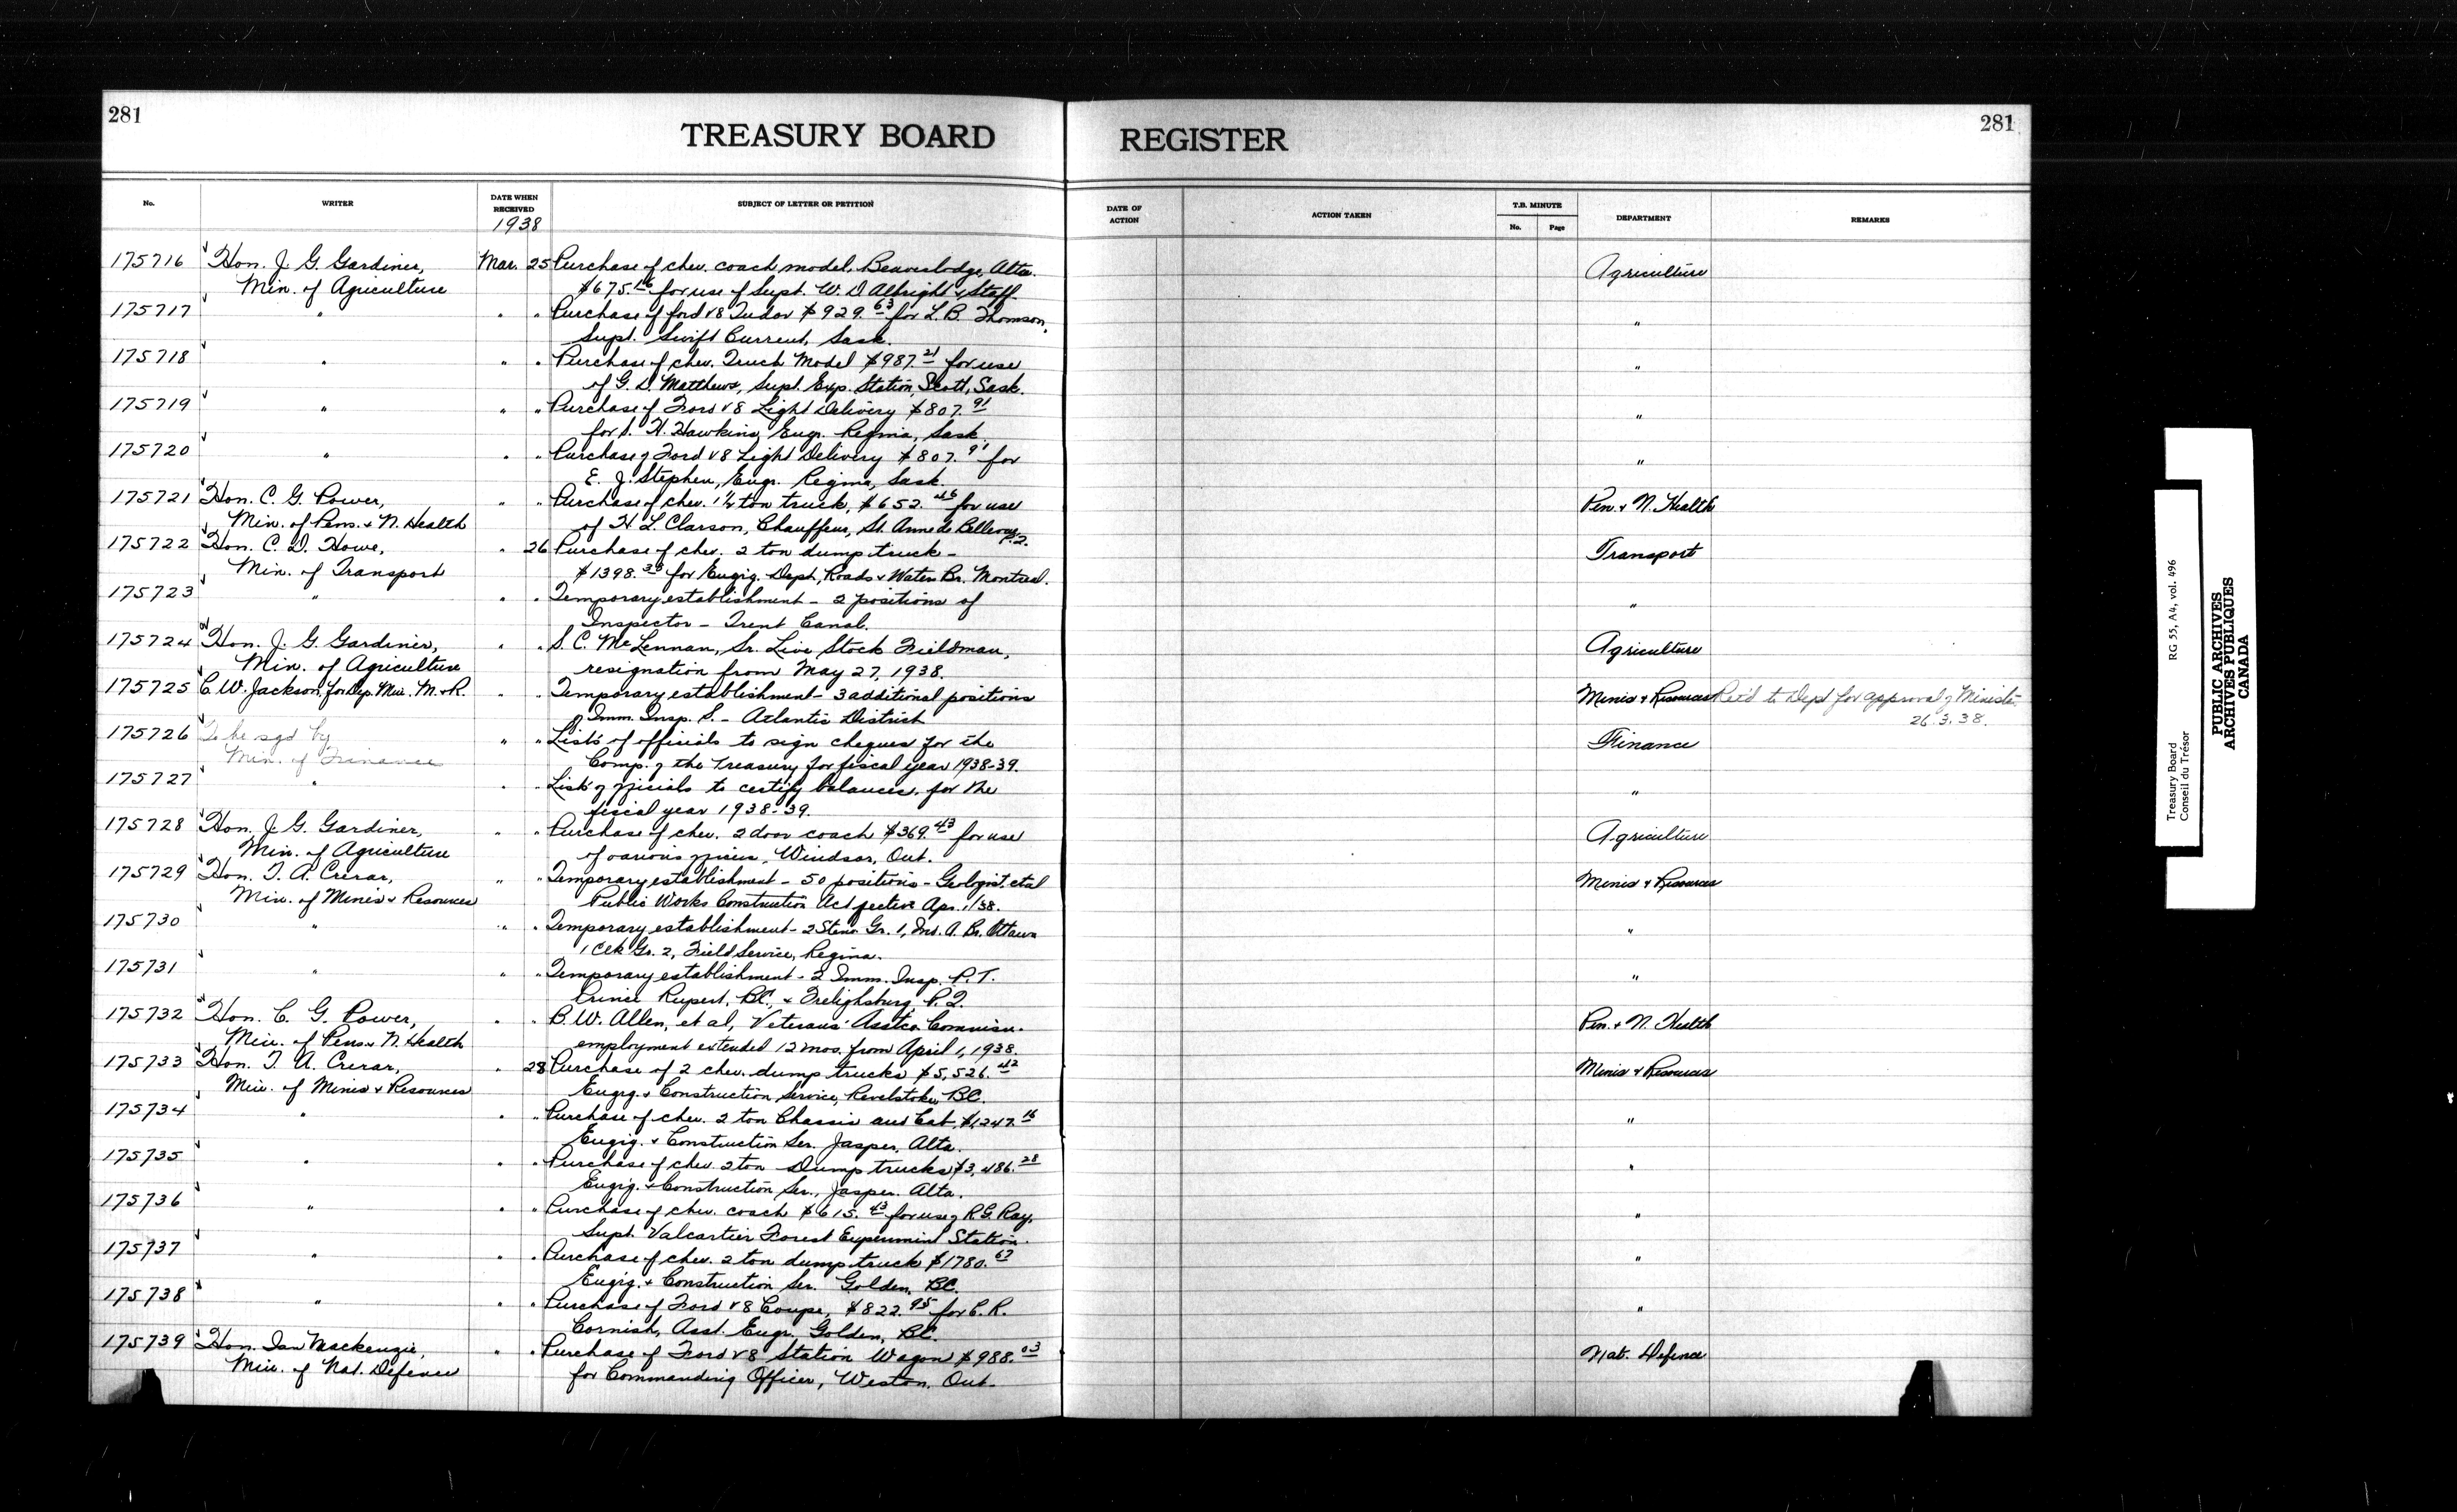 281
281
TREASURY BOARD REGISTER
No.
WRITER
DATE WHEN RECEIVED
SUBJECT OF LETTER OR PETITION
DATE OF ACTION
ACTION TAKEN
T.B. MINUTE
No.
Page
DEPARTMENT
REMARKS
1938
175716 Hon. J. G. Gardiner, Mar. 25 Purchase of chev. coach model, Beaverlodge, Alta. Agriculture
Min. of Agriculture $675.16 for use of Supt. W. D Albright & Staff.
175717 " " " Purchase of ford V8 Tudor $929.63 for L. B. Thomson, "
Supt. Swift Current, Sask.
175718 " " " Purchase of chev. Truck Model $987.21 for use "
of G. D. Matthews, Supt. Exp. Station, Scott, Sask.
175719 " " " Purchase of Ford V8 Light Delivery $807.91 "
for S. H. Hawkins, Engr. Regina, Sask.
175720 " " " Purchase of Ford V8 Light Delivery $807.91 for "
E. J. Stephen, Engr. Regina, Sask.
175721 Hon. C. G. Power, " " Purchase of chev. 1½ ton truck, $652.46 for use Pen. & N. Health
Min. of Pens. & N. Health of H. L. Clarson, Chauffeur, St. Anne de Bellevue P.Q.
175722 Hon. C. D. Howe, " 26 Purchase of chev. 2 ton dump truck - Transport
Min. of Transport $1398.33 for Engig. Dept, Roads & Water Br. Montreal.
175723 " " " Temporary establishment - 2 positions of "
Inspector - Trent Canal.
175724 Hon. J. G. Gardiner, " " S. C. McLennan, Sr. Live Stock Fieldman, Agriculture
Min. of Agriculture resignation from May 27, 1938.
175725 C. W. Jackson, for Dep. Min. M. & R. " " Temporary establishment - 3 additional positions Mines & Resources Ret'd to Dept for approval of Minister
of Imm. Insp. S. - Atlantic District 26.3.38.
175726 To be sgd by " " Lists of officials to sign cheques for the Finance
Min. of Finance Comp. of the Treasury for fiscal year 1938-39.
175727 " " " List of officials to certify balances, for the "
fiscal year 1938-39.
175728 Hon. J. G. Gardiner, " " Purchase of chev. 2 door coach $369.43 for use Agriculture
Min. of Agriculture of various officers, Windsor, Ont.
175729 Hon. T. A. Crerar, " " Temporary establishment - 50 positions - Geologist, et al Mines & Resources
Min. of Mines & Resources Public Works Construction Act Apr. 1/38.
175730 " " " Temporary establishment - 2 Steno Gr. 1, Ind. A. Br. Ottawa "
1 Clk Gr. 2, Field Service, Regina.
175731 " " " Temporary establishment - 2 Imm. Insp. P.T. "
Prince Rupert, B.C., & Frelighsburg, P.Q.
175732 Hon. C. G. Power, " " B. W. Allen, et al, Veterans' Asstce. Commisn. Pen. & N. Health
Min. of Pens. & N. Health employment extended 12 mos. from April 1, 1938.
175733 Hon. T. A. Crerar, " 28 Purchase of 2 chev. dump trucks $5,526.42 Mines & Resources
Min. of Mines & Resources Engrg. & Construction Service, Revelstoke, BC.
175734 " " " Purchase of chev. 2 ton Chassis and Cab, $1,247.16 "
Engig. & Construction Ser. Jasper, Alta.
175735 " " " Purchase of chev. 2 ton Dump trucks $3,486.28 "
Engig. & Construction Ser., Jasper. Alta.
175736 " " " Purchase of chev. coach $615.43 for use of R.G. Ray, "
Supt. Valcartier Forest Experiment Station.
175737 " " " Purchase of chev. 2 ton dump truck $1780.67 "
Engig. & Construction Ser. Golden, BC.
175738 " " " Purchase of Ford V8 Coupe, $822.95 for C. R. "
Cornish, Asst. Engr. Golden, BC.
175739 Hon. Ian Mackenzie, " " Purchase of Ford V8 Station Wagon $988.03 Nat. Defence
Min. of Nat. Defence for Commanding Officer, Weston, Ont.
Treasury Board RG 55, A4, vol. 496
Conseil du Trésor
PUBLIC ARCHIVES
ARCHIVES PUBLIQUES
CANADA